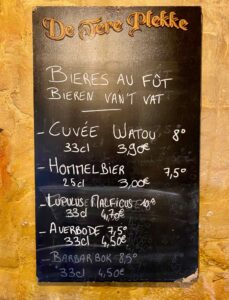 De Tere Plekke
BIERES AU FÛT
BIEREN VAN'T VAT
- CUVÉE WATOU 8°
33cl 3,90€
- HOMMELBIER 7,5°
25cl 3,00€
- LUPULUS MALFICUS
33cl 4,70€
- AVERBODE 7,5°
33cl 4,50€
- BARBAR BOK 8,5°
33cl 4,50€